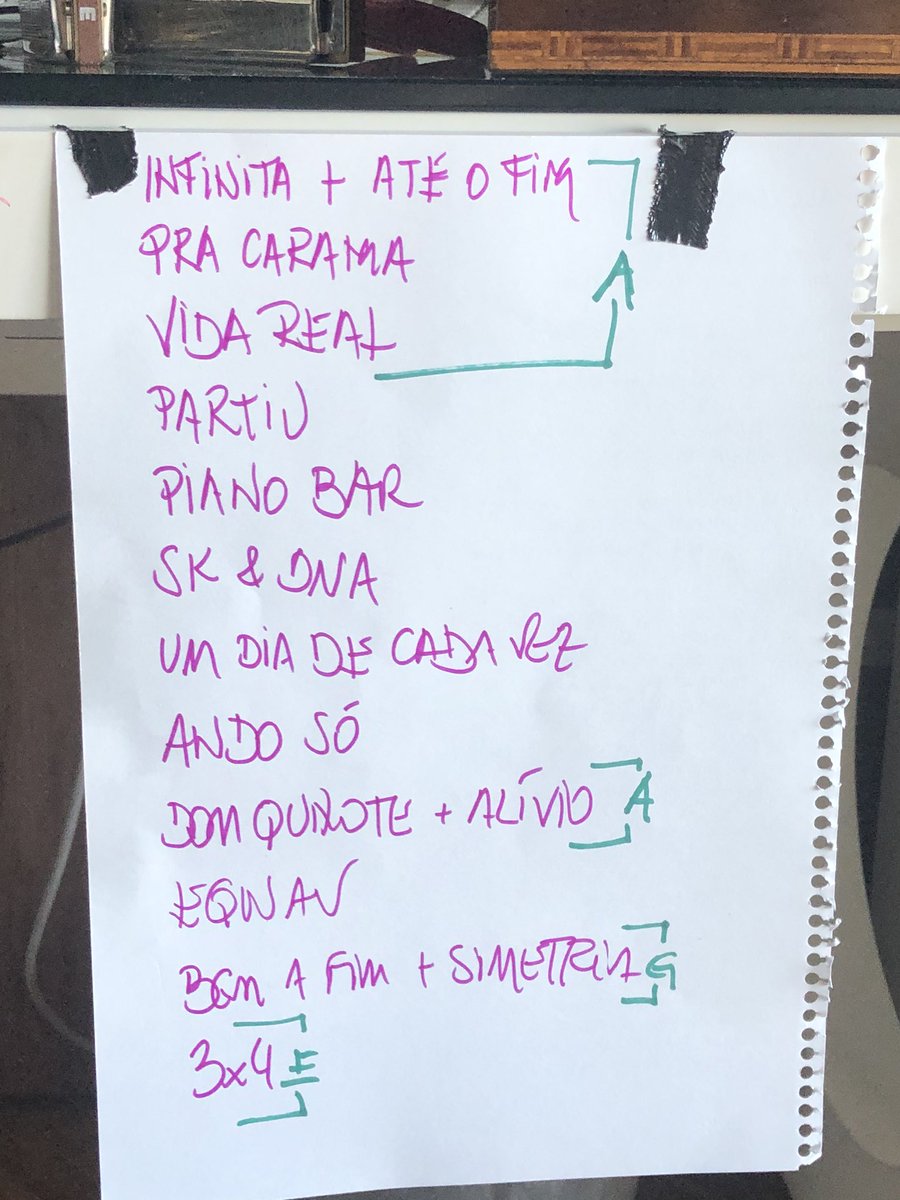 E
INFINITA + ATÉ O FIM
PRA CARAMBA
A
VIDA REAL
PARTIU
PIANO BAR
SK & DNA
UM DIA DE CADA VEZ
ANDO SÓ
DOM QUIXOTE + ALÍVIO A
EQNAV
BEM A FIM + SIMETRIA G
3x4 E